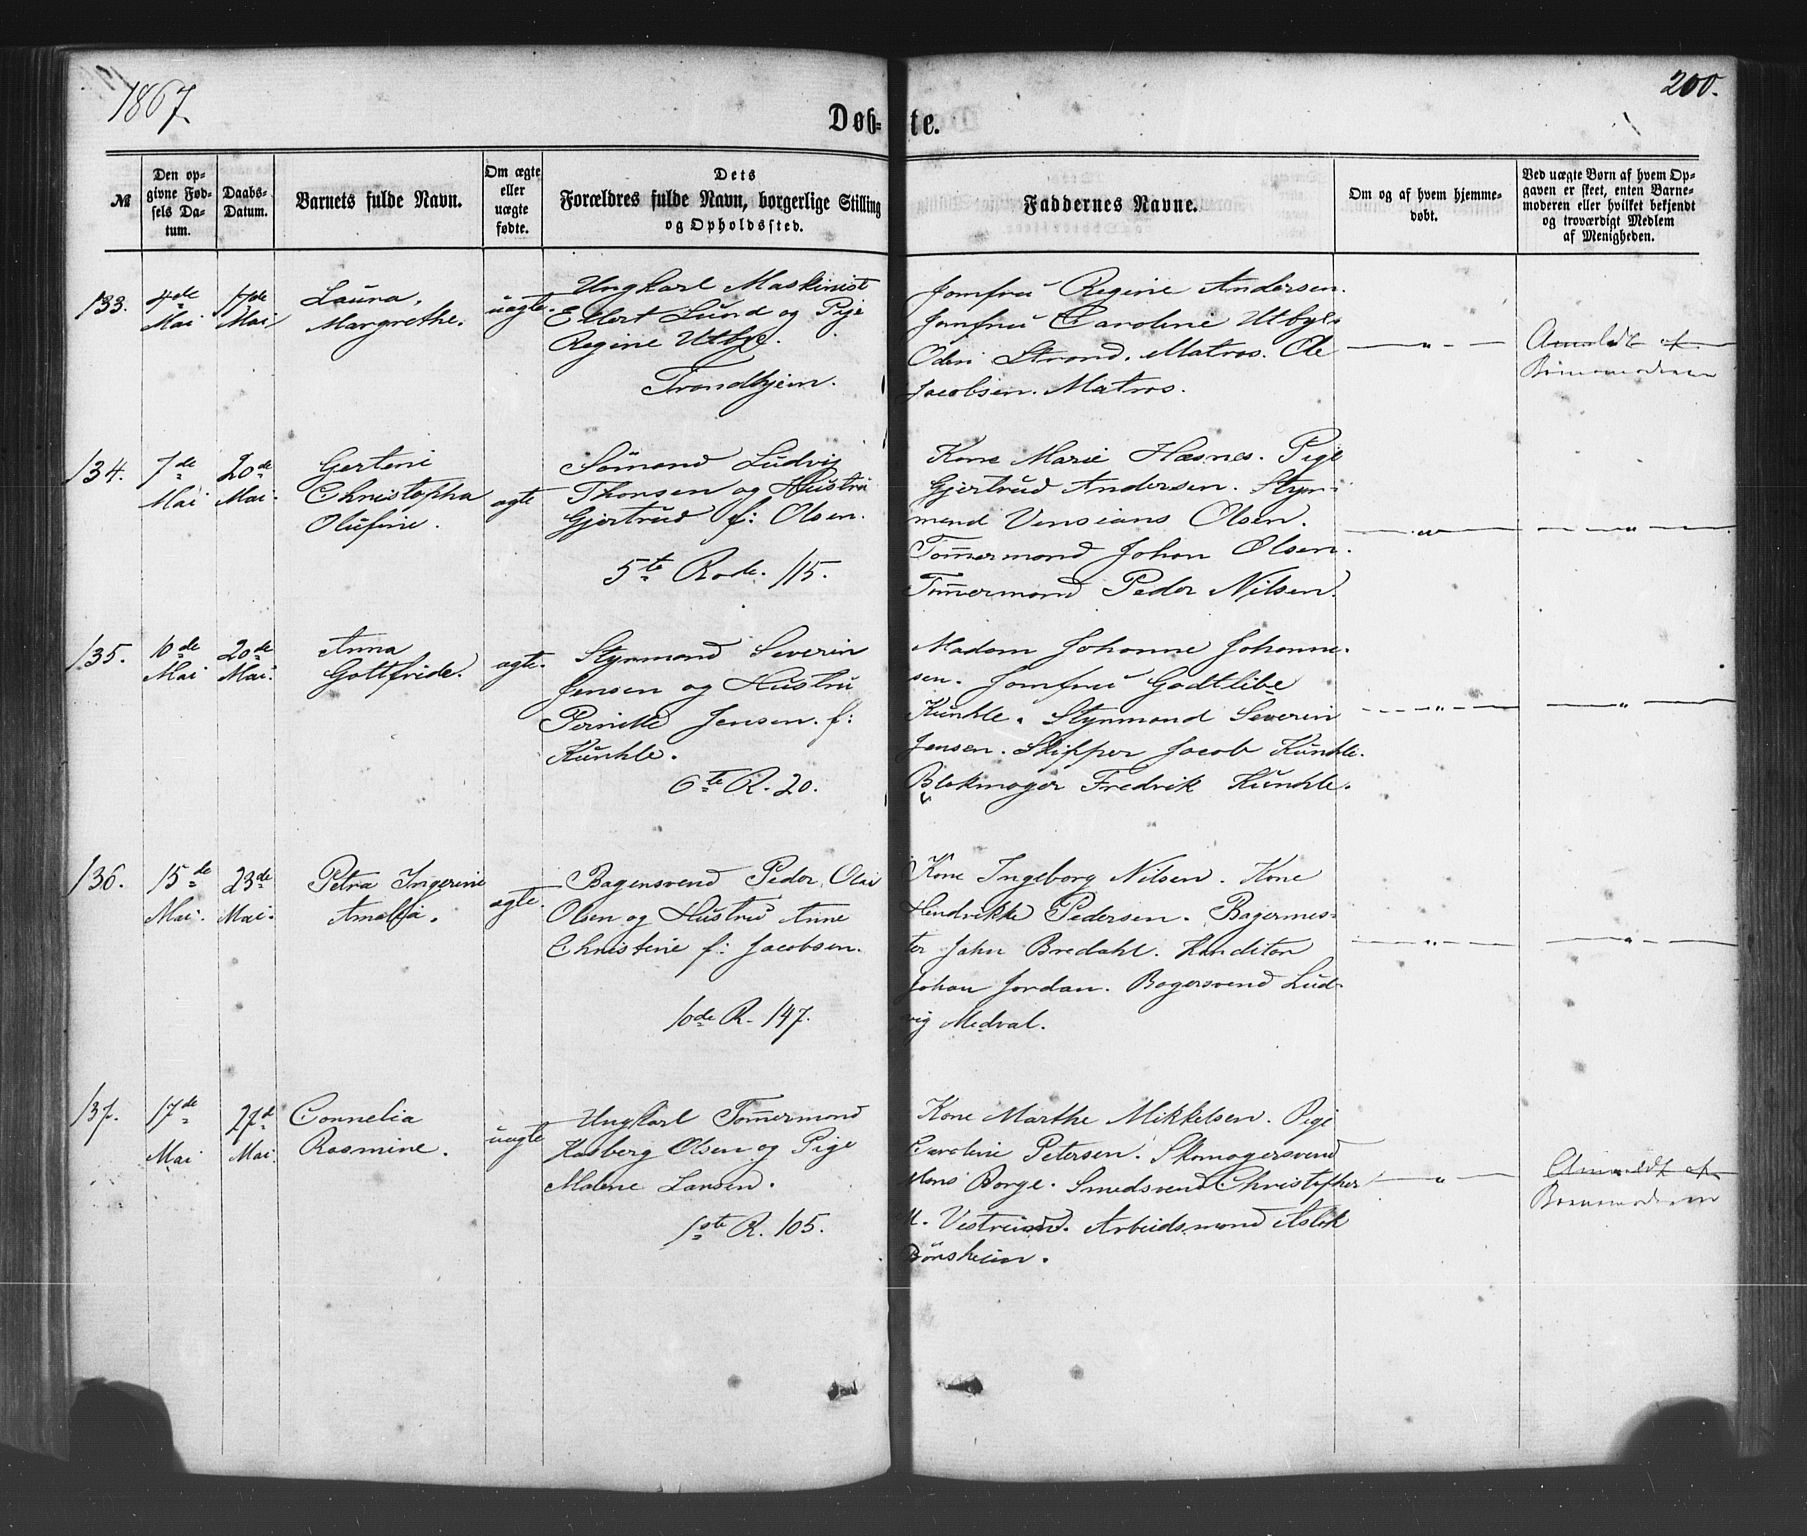 1867.
200.
Døb-te.
№
Den opgivne Fødsels Datum.
Daabs-Datum.
Barnets fulde Navn.
Om ægte eller uægte fødte.
Dets Forældres fulde Navn, borgerlige Stilling og Opholdssted.
Faddernes Navne.
Om og af hvem hjemmedøbt.
Ved uægte Børn af hvem Opgaven er skeet, enten Barnemoderen eller hvilket bekjendt og troværdigt Medlem af Menigheden.
133.
4de Mai
17de Mai
Laura,
Margrethe.
uægte.
Ungkarl Maskinist
Ellert Lund og Pige
Regine Utbye.
Trondhjem.
Jomfru Regine Andersen.
Jomfru Caroline Utbye
Odin Strand. Matros. Ole
Jacobsen. Matros.
— " —
Anmeldt af
Barnemoderen
134.
7de Mai
20de Mai.
Gertine
Christopha
Olufine.
ægte
Sømand Ludvig
Thonsen og Hustru
Gjertrud f: Olsen.
5te Rode. 115.
Kone Marie Hæsnes. Pige
Gjertrud Andersen. Styr-
mand Olsen.
Tømmermand Johan Olsen.
Tømmermand Peder Nilsen.
— " —
— " —
135.
10de Mai
20de Mai.
Anna
Gottfride.
ægte.
Styrmand Severin
Jensen og Hustru
Pernille Jensen. f:
Kunhle.
6te R. 20.
Madam Johanne Johanne-
sen. Jomfru Godtlibe
Kunhle. Styrmand Severin
Jensen. Skipper Jacob Kunhle.
Blokmager Fredrik Kunhle.
— " —
— " —
136.
15de Mai.
23de Mai.
Petra Ingerine
Amalia.
ægte.
Bagersvend Peder Olai
Olsen og Hustru Anne
Christine f: Jacobsen.
10de R. 147.
Kone Ingeborg Nilsen. Kone
Hendrikke Pedersen. Bagermes-
ter Jahn Bredahl. Konditor
Johan Jordan. Bagersvend Lud-
vig Medval.
— " —
— " —
137.
17de Mai
27de Mai.
Cornelia
Rasmine.
uægte
Ungkarl Tømmermand
Hasberg Olsen og Pige
Malene Larsen.
1ste R. 105.
Kone Marthe Mikkelsen. Pige
Caroline Petersen. Skomagersvend
Mons Borge. Smedsvend Christopher
M. Vestreim. Arbeidsmand Aslak
Børsheim.
— " —
Anmeldt af
Barnemoderen